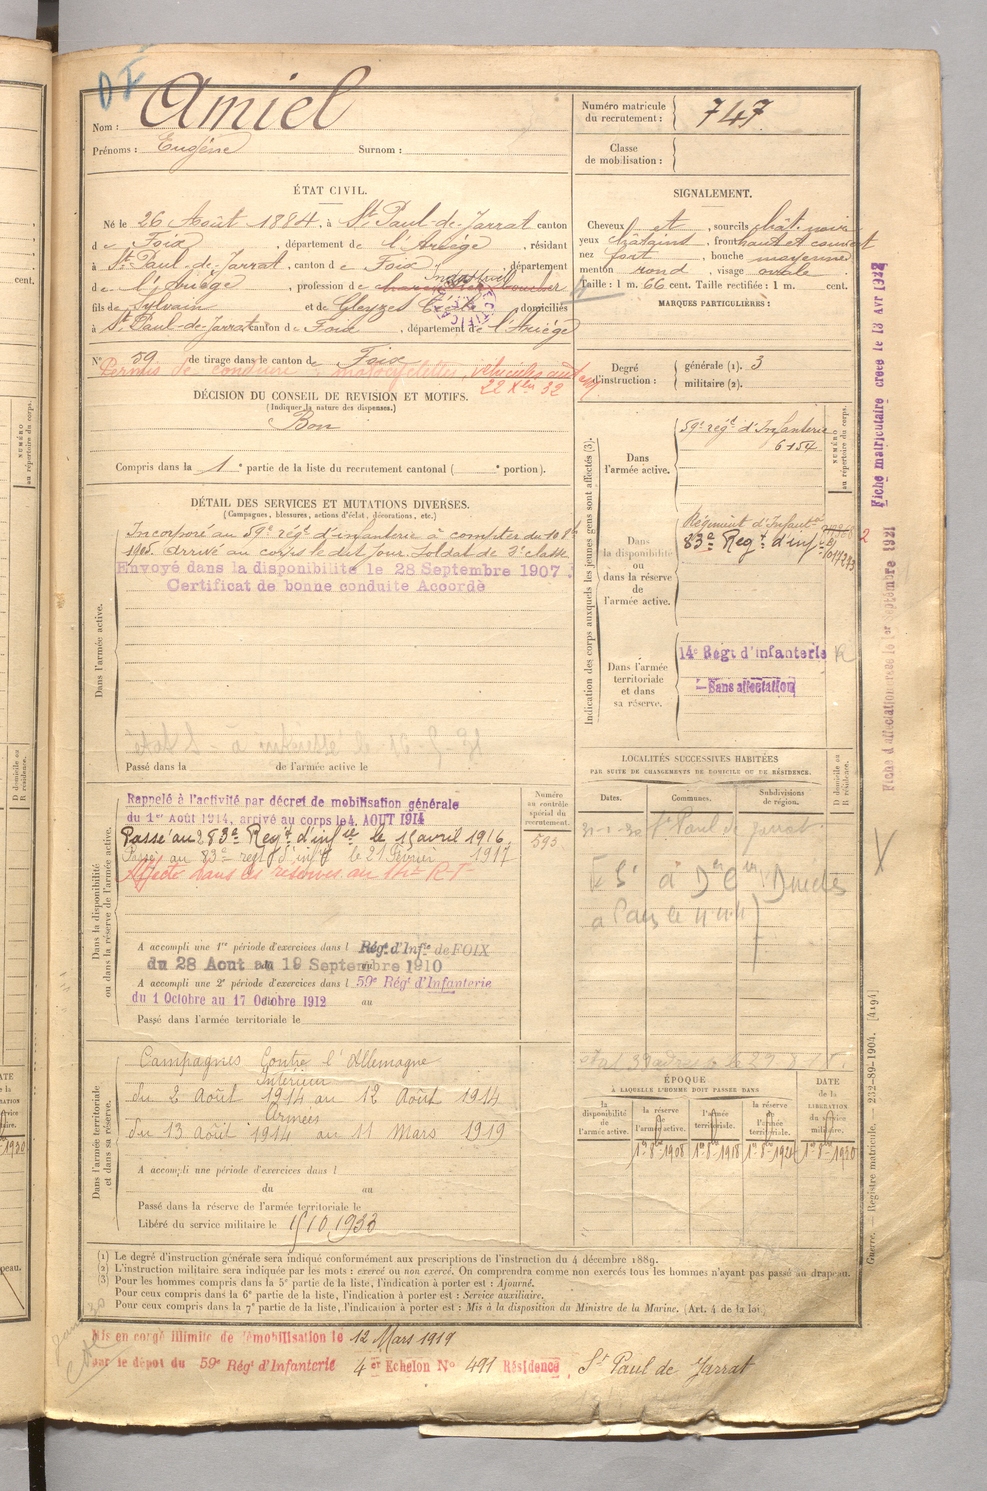 Nom : Amiel
Prénoms : Eugène Surnom :
Numéro matricule du recrutement : 747
Classe de mobilisation :
ÉTAT CIVIL.
Né le 26 Août 1884, à St Paul-de-Jarrat canton
de Foix, département de l'Ariège, résidant
à St Paul-de-Jarrat, canton de Foix, département
de l'Ariège, profession de boucher
fils de Sylvain et de Gleyzes domiciliés
à St Paul-de-Jarrat canton de Foix, département de l'Ariège
N° 59 de tirage dans le canton de Foix
Permis de conduire motocyclettes, véhicules
22 Xbre 32
DÉCISION DU CONSEIL DE REVISION ET MOTIFS.
(Indiquer la nature des dispenses.)
Bon
Compris dans la 1e partie de la liste du recrutement cantonal ( e portion).
SIGNALEMENT.
Cheveux et sourcils chât. noir
yeux châtains, front haut et couvert
nez fort, bouche moyenne
menton rond, visage ovale
Taille : 1 m. 66 cent. Taille rectifiée : 1 m. cent.
MARQUES PARTICULIÈRES :
Degré d'instruction : générale (1). 3
militaire (2).
DÉTAIL DES SERVICES ET MUTATIONS DIVERSES.
(Campagnes, blessures, actions d'éclat, décorations, etc.)
Dans l'armée active.
Incorporé au 59e régt d'infanterie à compter du 10 8bre
1905. Arrivé au corps le dit jour. Soldat de 2e classe
Envoyé dans la disponibilité le 28 Septembre 1907.
Certificat de bonne conduite Accordé
Passé dans la de l'armée active le
Indication des corps auxquels les jeunes gens sont affectés (3).
NUMÉRO au répertoire du corps.
Dans l'armée active.
59e régt d'Infanterie
6154
Dans la disponibilité ou dans la réserve de l'armée active.
Régiment d'Infante
83e Regt d'infie
Dans l'armée territoriale et dans sa réserve.
14e Régt d'Infanterie
Sans affectation
Dans la disponibilité ou dans la réserve de l'armée active.
Rappelé à l'activité par décret de mobilisation générale
du 1er Août 1914, arrivé au corps le 4 AOUT 1914
Passé au 283e Regt d'infie le 15 avril 1916.
Passé au 83e regt d'infie le 21 Février 1917
Affecté dans les réserves au 14e R.I.
Numéro au contrôle spécial du recrutement.
593
A accompli une 1re période d'exercices dans l Régt d'Infie de FOIX
du 28 Aout au 19 Septembre 1910
A accompli une 2e période d'exercices dans l 59e Régt d'Infanterie
du 1 Octobre au 17 Octobre 1912 au
Passé dans l'armée territoriale le
LOCALITÉS SUCCESSIVES HABITÉES
PAR SUITE DE CHANGEMENTS DE DOMICILE OU DE RÉSIDENCE.
Dates. Communes. Subdivisions de région. D domicile ou R résidence.
St Paul de Jarrat
Dans l'armée territoriale et dans sa réserve.
Campagnes Contre l'Allemagne
Intérieur
du 2 Août 1914 au 12 Août 1914
Armées
du 13 Août 1914 au 11 Mars 1919
A accompli une période d'exercices dans l
du au
Passé dans la réserve de l'armée territoriale le
Libéré du service militaire le 15 10 1933
ÉPOQUE
À LAQUELLE L'HOMME DOIT PASSER DANS
la disponibilité de l'armée active.
la réserve de l'armée active.
l'armée territoriale.
la réserve de l'armée territoriale.
DATE de la LIBÉRATION du service militaire.
1er 8bre 1908 1er 8bre 1918 1er 8bre 1924 1er 8bre 1930
(1) Le degré d'instruction générale sera indiqué conformément aux prescriptions de l'instruction du 4 décembre 1889.
(2) L'instruction militaire sera indiquée par les mots : exercé ou non exercé. On comprendra comme non exercés tous les hommes n'ayant pas passé au drapeau.
(3) Pour les hommes compris dans la 5e partie de la liste, l'indication à porter est : Ajourné.
Pour ceux compris dans la 6e partie de la liste, l'indication à porter est : Service auxiliaire.
Pour ceux compris dans la 7e partie de la liste, l'indication à porter est : Mis à la disposition du Ministre de la Marine. (Art. 4 de la loi.)
Mis en congé illimité de démobilisation le 12 Mars 1919
par le dépôt du 59e Régt d'Infanterie 4er Echelon N° 491 Résidence St Paul de Jarrat
Fiche matriculaire créée le 13 Avr 1922
Fiche d'affectation créée le 1er Septembre 1921
Guerre. — Registre matricule. — 232-89-1904. [4194]